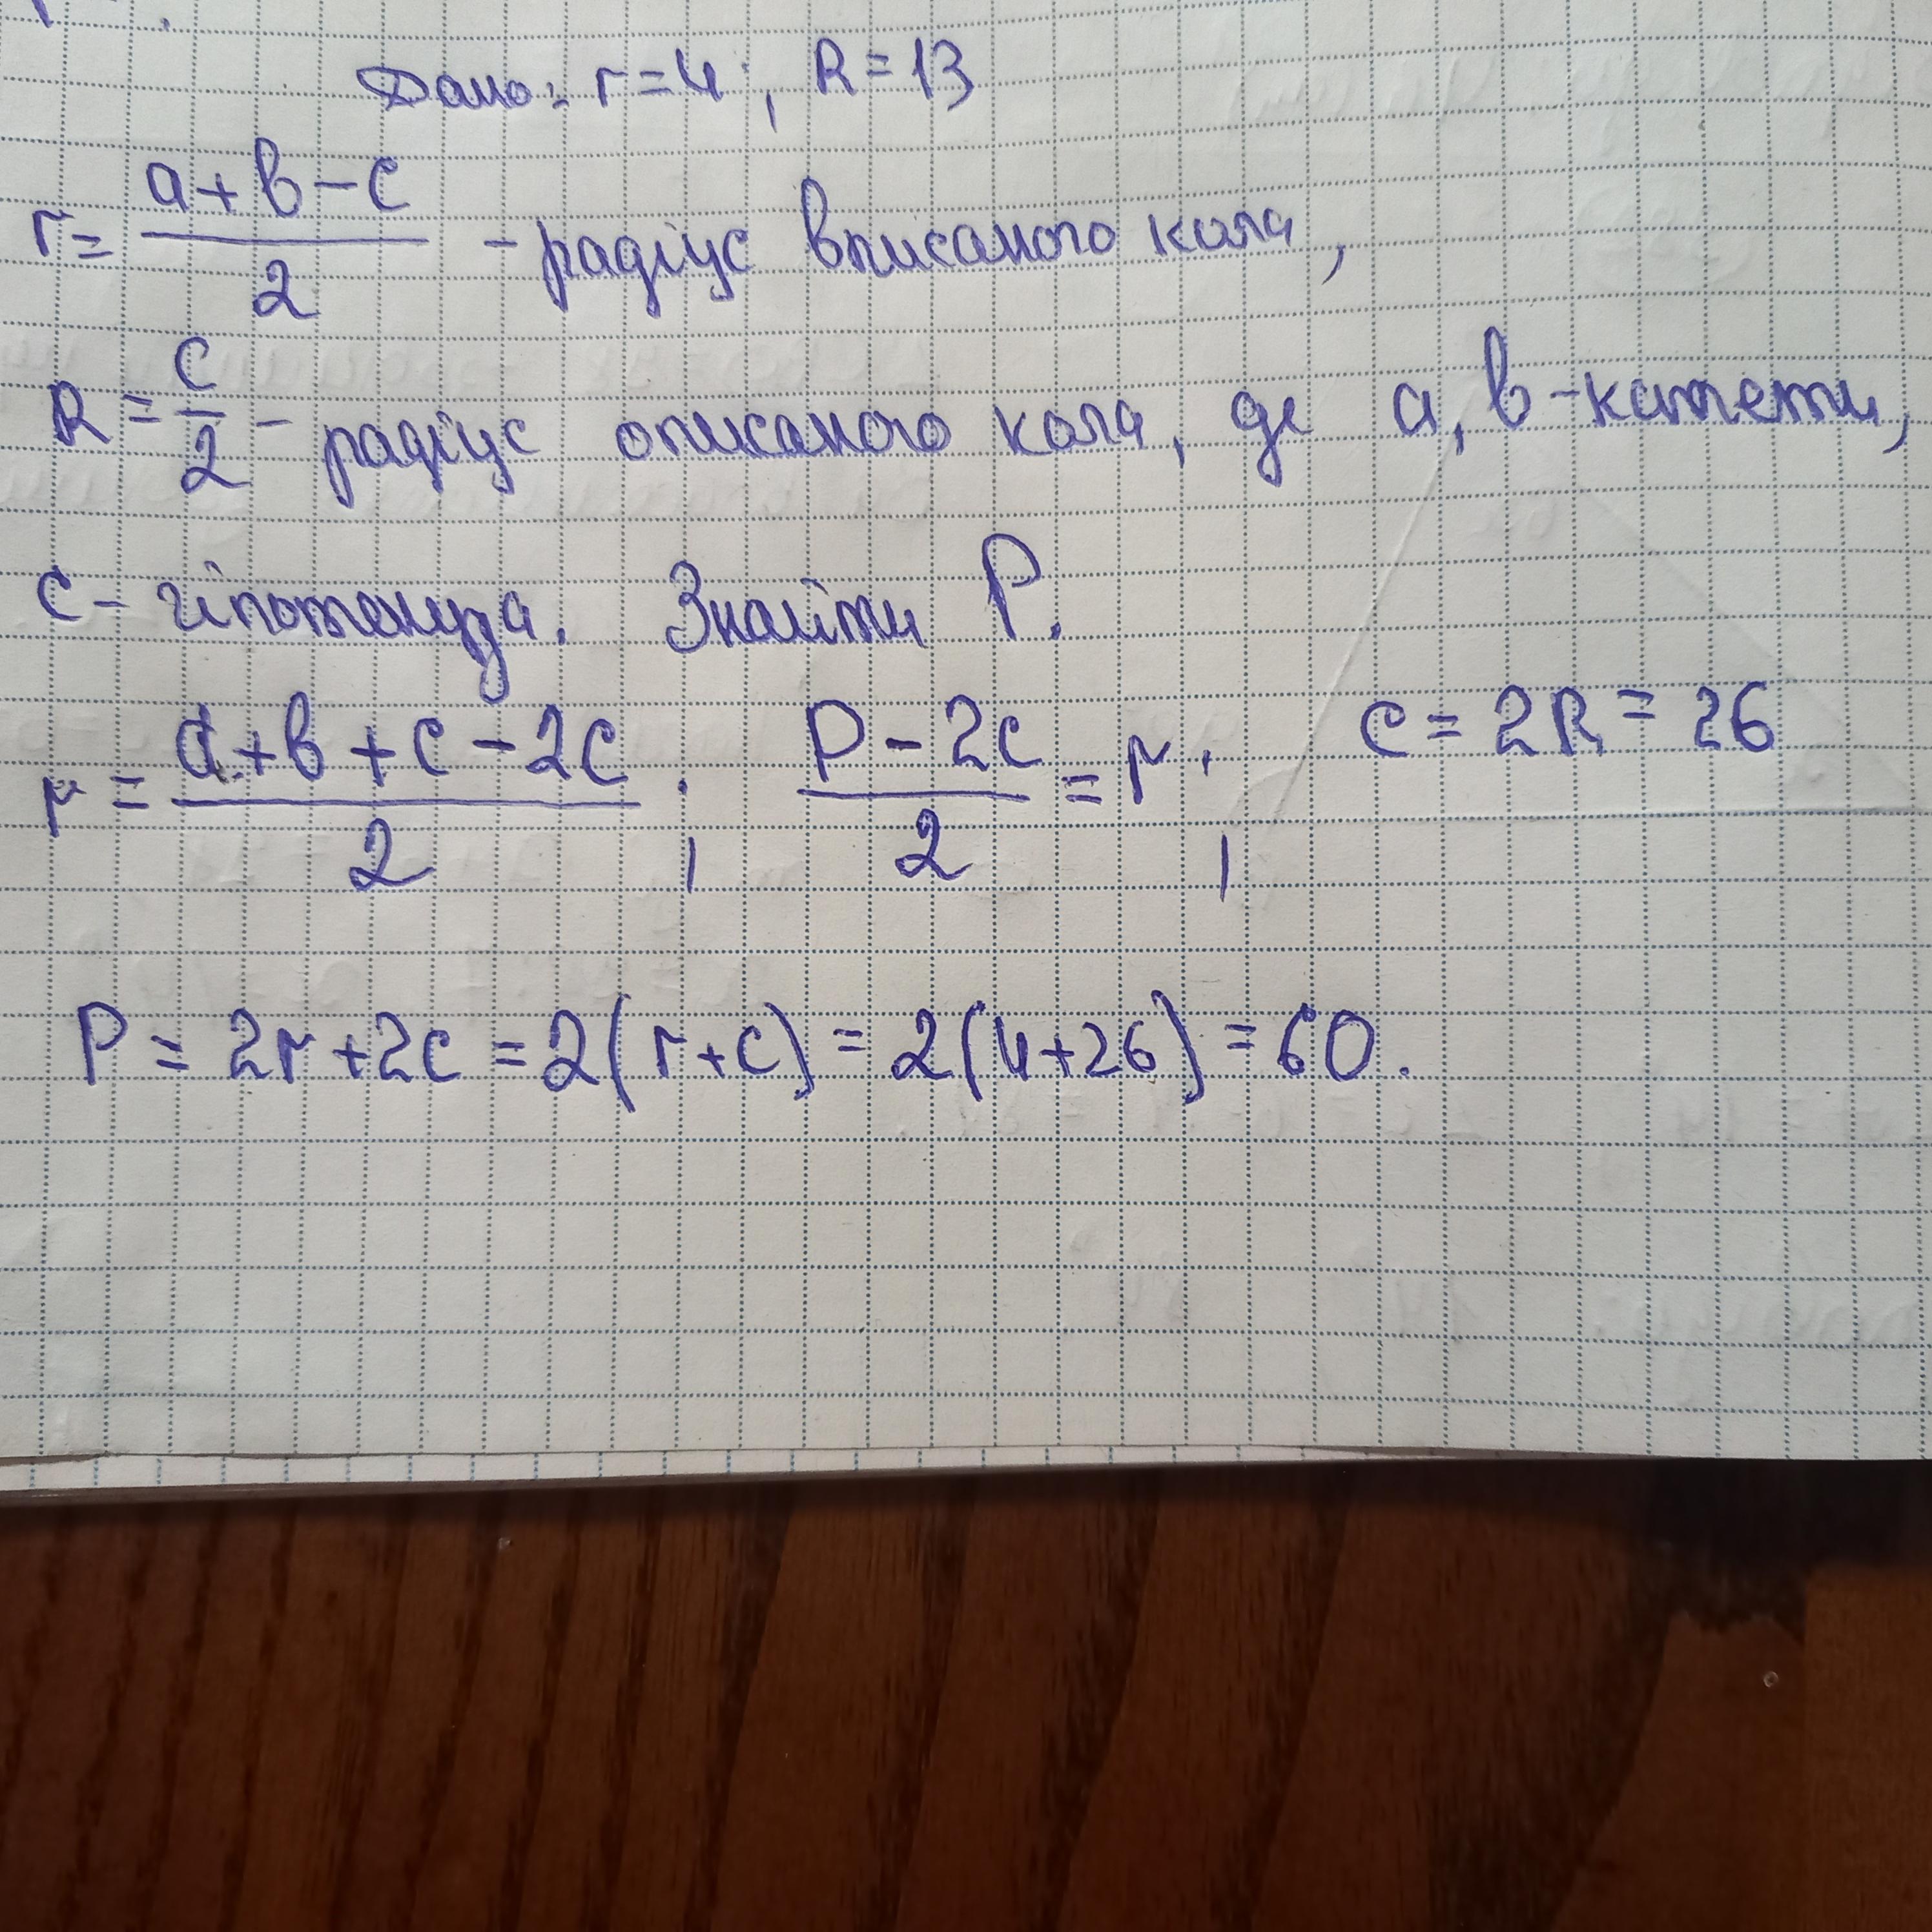 Дано: r = 4; R = 13
r = (a + b - c) / 2 - радіус вписаного кола,
R = c / 2 - радіус описаного кола, де a, b - катети,
c - гіпотенуза. Знайти P.
r = (a + b + c - 2c) / 2; (P - 2c) / 2 = r; c = 2R = 26
P = 2r + 2c = 2(r + c) = 2(4 + 26) = 60.